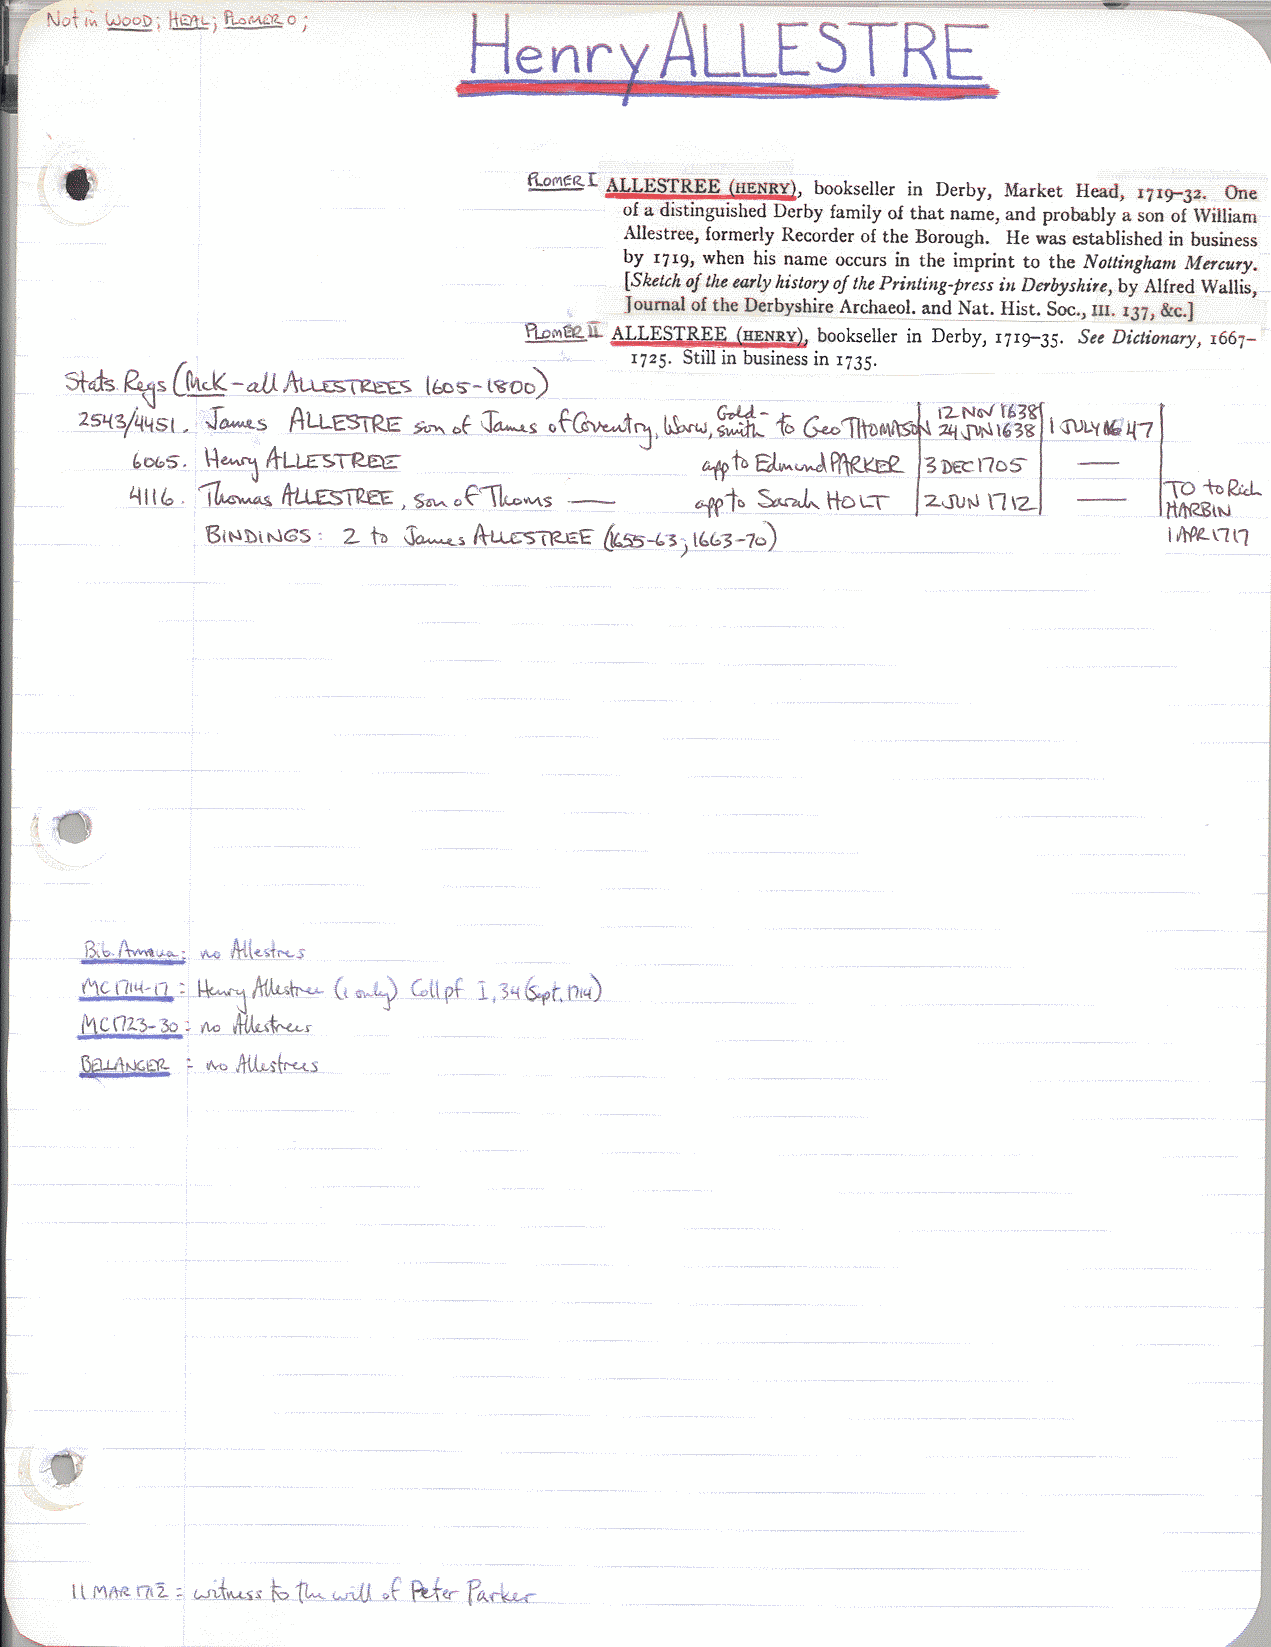 Not in WOOD; HEAL; PLOMER 0;
Henry ALLESTRE
PLOMER I ALLESTREE (HENRY), bookseller in Derby, Market Head, 1719–32. One
of a distinguished Derby family of that name, and probably a son of William
Allestree, formerly Recorder of the Borough. He was established in business
by 1719, when his name occurs in the imprint to the Nottingham Mercury.
[Sketch of the early history of the Printing-press in Derbyshire, by Alfred Wallis,
Journal of the Derbyshire Archaeol. and Nat. Hist. Soc., III. 137, &c.]
PLOMER II ALLESTREE (HENRY), bookseller in Derby, 1719–35. See Dictionary, 1667–
1725. Still in business in 1735.
Stats. Regs (McK – all ALLESTREES 1605-1800)
2543/4451. James ALLESTRE son of James of Coventry, Warw, Gold-smith to Geo THOMASON 12 NOV 1638 24 JUN 1638 1 JULY 1647
6065. Henry ALLESTREE app to Edmund PARKER 3 DEC 1705 —
4116. Thomas ALLESTREE, son of Thoms — app to Sarah HOLT 2 JUN 1712 — TO to Rich
HARBIN
BINDINGS: 2 to James ALLESTREE (1655-63; 1663-70) 1 APR 1717
Bib. Annua: no Allestres
MC 1714-17 = Henry Allestree (1 only) Coll pf I, 34 (Sept. 1714)
MC 1723-30 = no Allestrees
BELLANGER = no Allestrees
11 MAR 1712 = witness to the will of Peter Parker